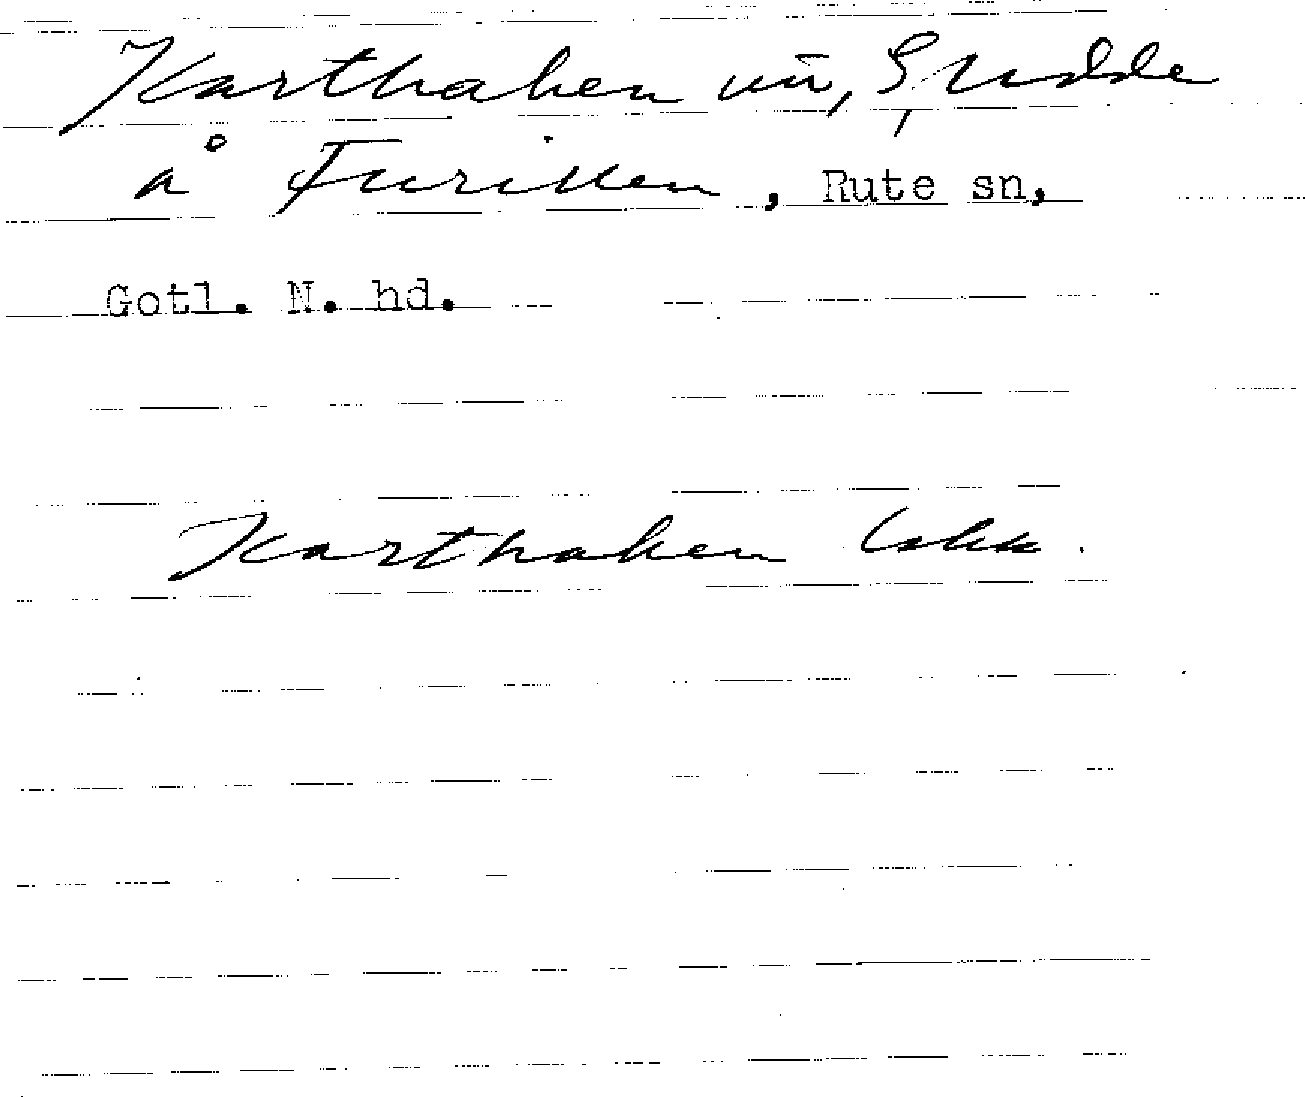 Karthaken Udde
å Furillen, Rute sn,
Gotl. N. hd.
Karthaken